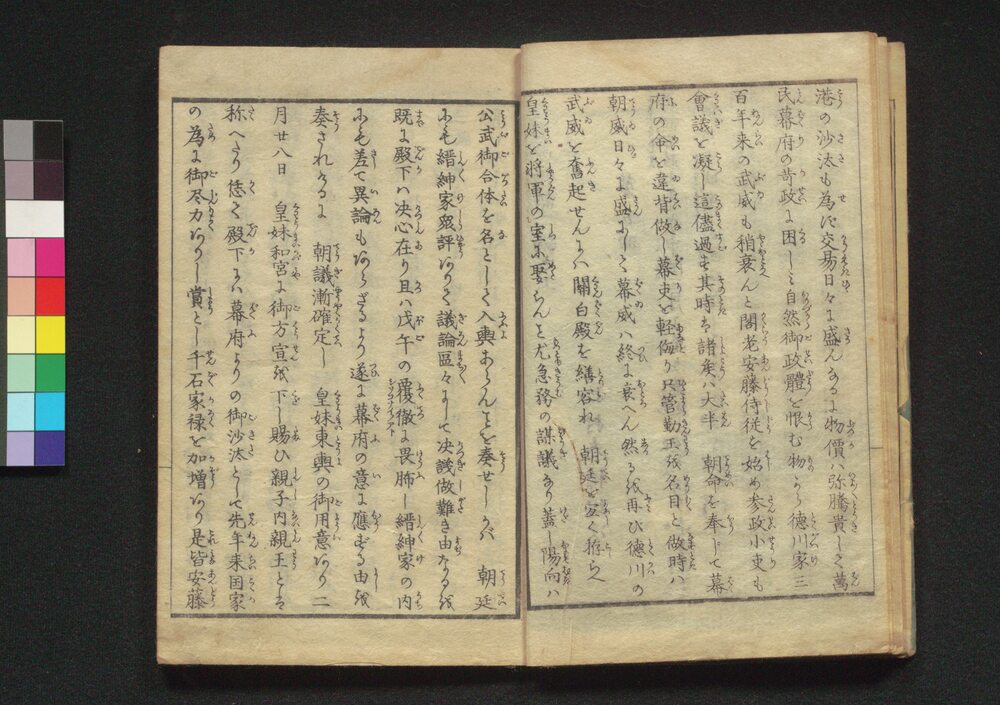 港の沙汰も為に交易日々に盛んなるに物價ハ弥騰貴して萬
民幕府の苛政に困しミ自然御政體を恨む物から德川家三
百年来の武威も稍衰んと閣老安藤侍従を始め参政小吏も
會議を凝し這儘過さ其時ハ諸矦ハ大半 朝命を奉じて幕
府の令を違背做し幕吏を軽侮り只管勤王を名目と做時ハ
朝威日々に盛にして幕威ハ終に衰へん然るを再び德川の
武威を奮起せんにハ關白殿を繕容れ 朝廷を安く拵らへ
皇妹を将軍の室に娶らんと尤急務の謀議あり蓋し陽向ハ
公武御合体を名として入輿あらんことを奏せしかバ 朝廷
にも縉紳家衆評ありて議論區々にして决議做難き由なるを
既に殿下ハ决心在り且ハ戊午の覆徹に畏怖し縉紳家の内
にも差て異論もあらざるより遂に幕府の意に應ぜる由を
奏されけるに 朝議漸確定し 皇妹東輿の御用意あり二
月廿八日 皇妹和宮に御方宣を 下し賜ひ親子内親王とぞ
称へたり恁て殿下にハ幕府よりの御沙汰として先年来国家
の為に御尽力ありし賞とし千石家禄を加増あり是皆安藤